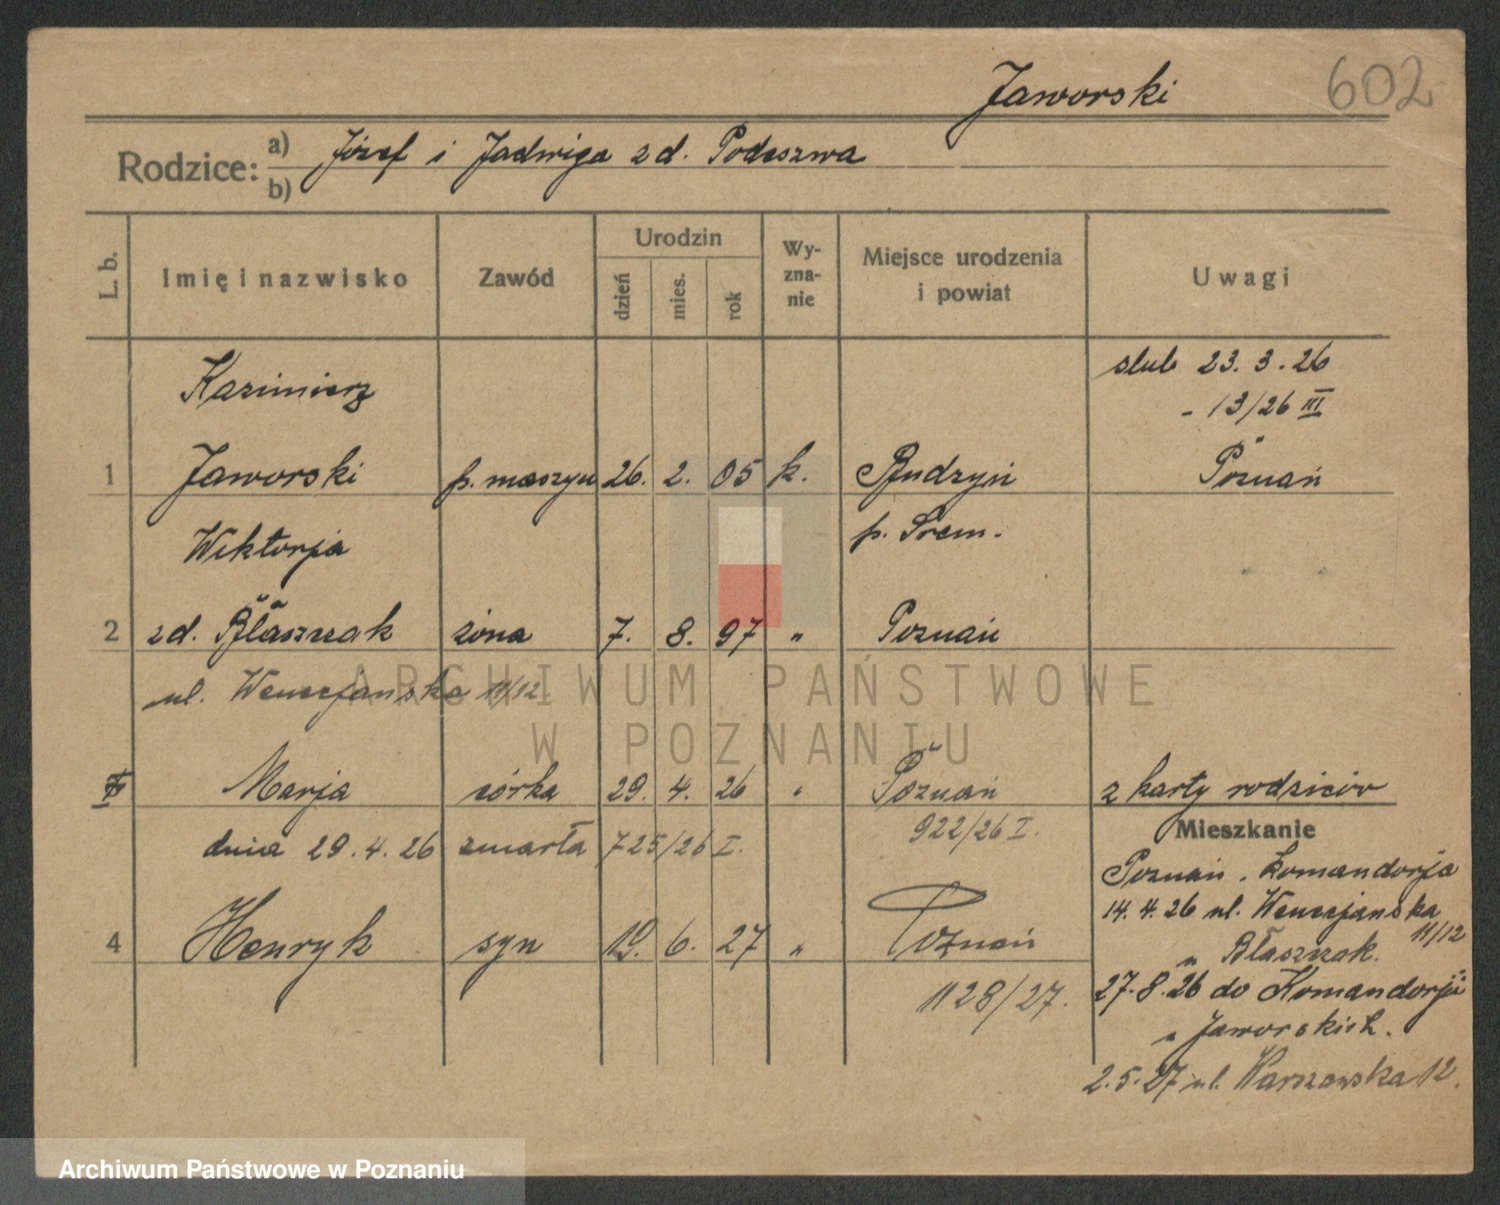 Jaworski 602
Rodzice: a) Józef i Jadwiga zd. Podeszwa
b)
L. b. Imię i nazwisko Zawód Urodzin dzień mies. rok Wyznanie Miejsce urodzenia i powiat Uwagi
Kazimierz ślub 23. 3. 26
- 13/26 III
1 Jaworski p. maszyn 26. 2. 05 k. Budzyń Poznań
Wiktorja p. Śrem.
2 zd. Błaszczak żona 7. 8. 97 " Poznań
ul. Wenecjańska 11/12.
Marja córka 29. 4. 26 " Poznań z karty rodziców
dnia 29. 4. 26 zmarła 725/26 I. 922/26 I. Mieszkanie
Poznań, Komandorja
14. 4. 26 ul. Wenecjańska 11/12
4 Henryk syn 19. 6. 27 " Poznań " Błaszczak.
1128/27. 27. 8. 26 do Komandorji
" Jaworskich.
2. 5. 27 ul. Warszawska 12.
ARCHIWUM PAŃSTWOWE
W POZNANIU
Archiwum Państwowe w Poznaniu